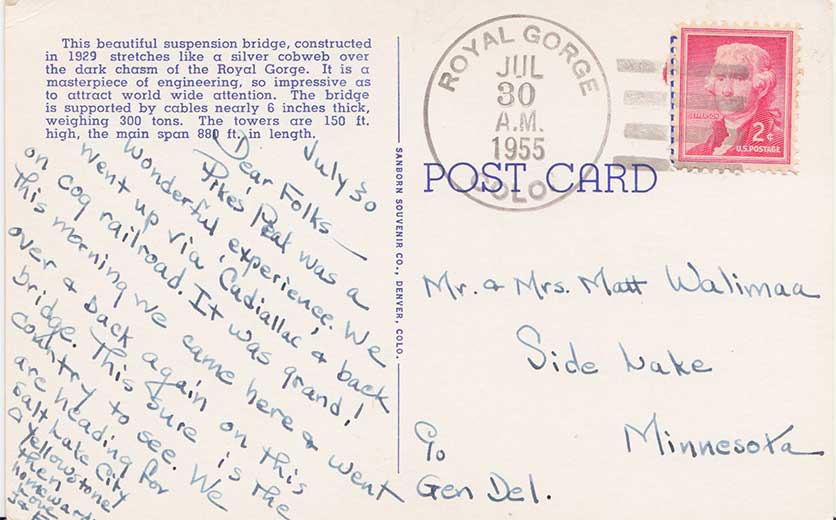 This beautiful suspension bridge, constructed
in 1929 stretches like a silver cobweb over
the dark chasm of the Royal Gorge. It is a
masterpiece of engineering, so impressive as
to attract world wide attention. The bridge
is supported by cables nearly 6 inches thick,
weighing 300 tons. The towers are 150 ft.
high, the main span 880 ft. in length.
July 30
Dear Folks—
Pikes Peak was a
wonderful experience. We
went up via Cadiallac & back
on cog railroad. It was grand!
This morning we came here & went
over & back again on this
bridge. This sure is the
country to see. We
are heading for
Salt Lake City
& Yellowstone
then
homeward
Love
SANBORN SOUVENIR CO., DENVER, COLO.
ROYAL GORGE
JUL
30
A.M.
1955
COLO.
JEFFERSON
2¢
U.S. POSTAGE
POST CARD
Mr. & Mrs. Matt Walimaa
Side Lake
Minnesota
c/o
Gen Del.